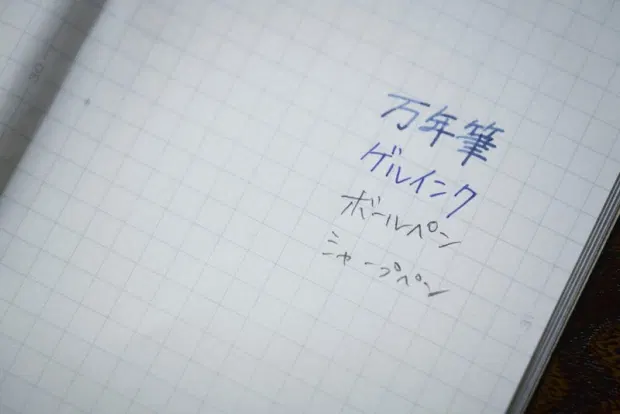 万年筆
ゲルインク
ボールペン
シャープペン